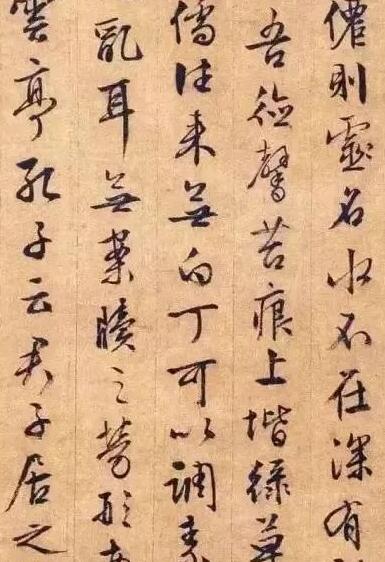 僊則靈名水不在深有
吾德馨苔痕上堦綠草
儒往来無白丁可以調素
亂耳無案牘之勞形
雲亭孔子云君子居之